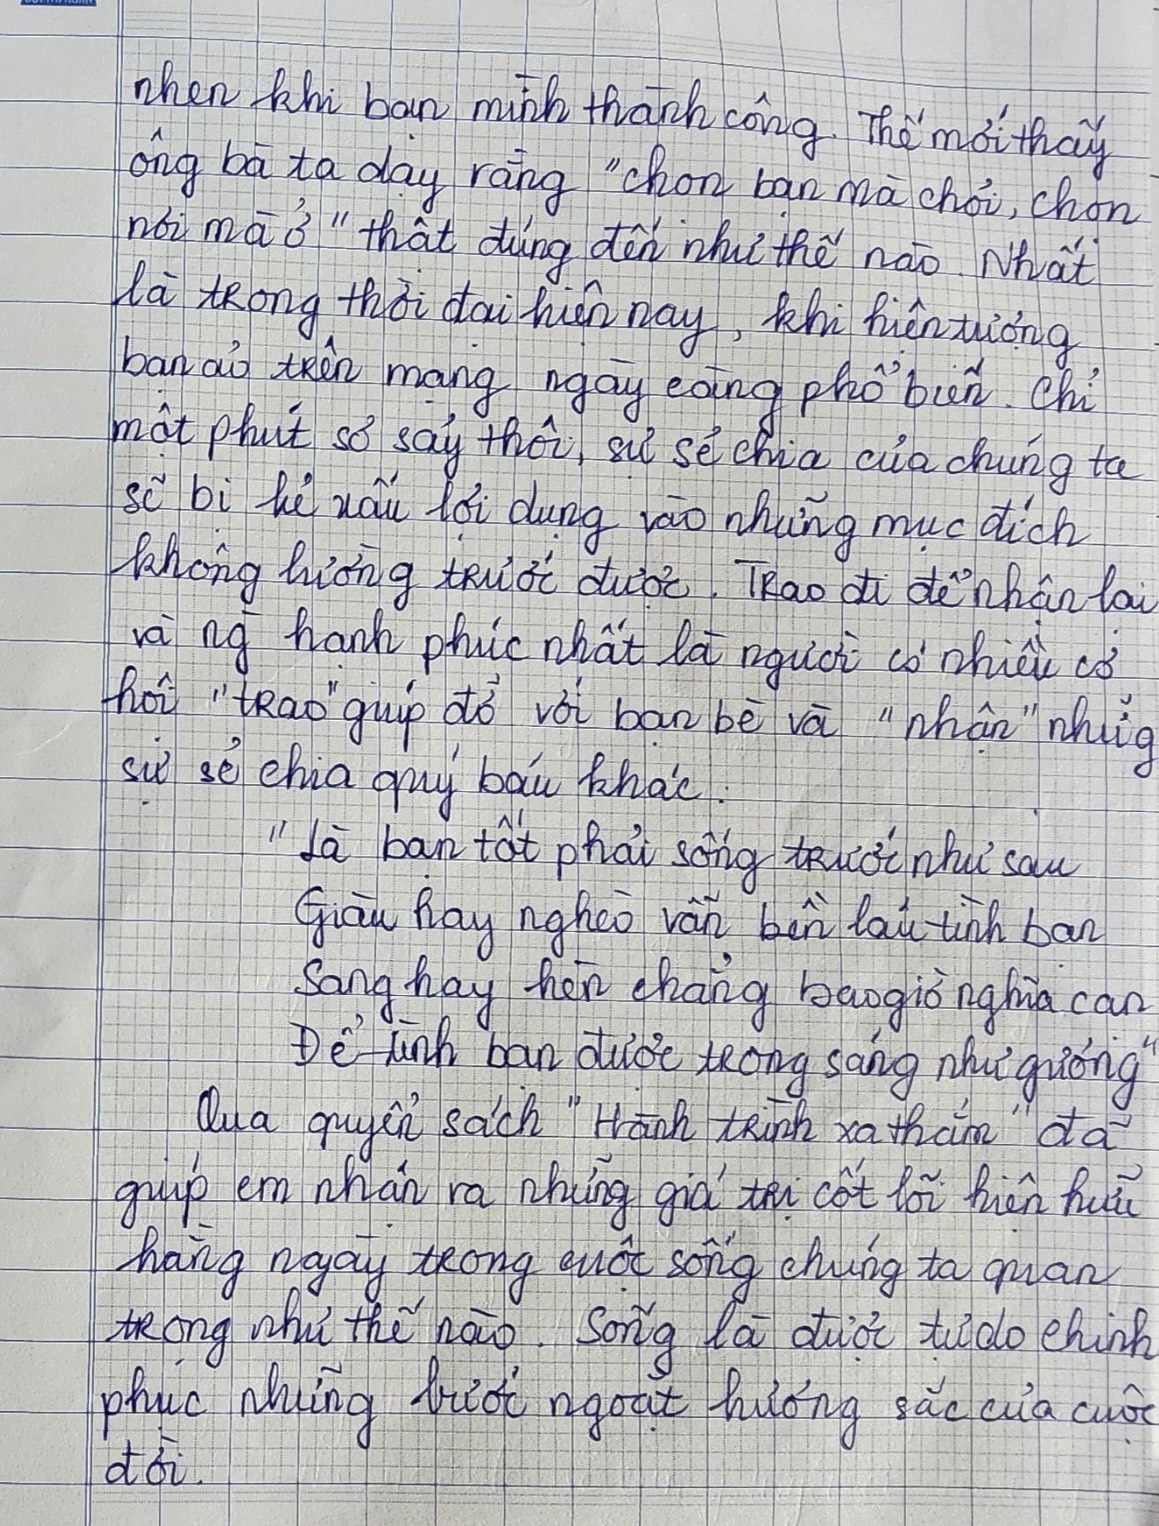 nhen khi bạn mình thành công. Thế mới thấy
ông bà ta dạy rằng "chọn bạn mà chơi, chọn
nơi mà ở" thật đúng đến như thế nào. Nhất
là trong thời đại hiện nay, khi hiện tượng
bạn ảo trên mạng ngày càng phổ biến. Chỉ
một phút sơ sảy thôi, sự sẻ chia của chúng ta
sẽ bị kẻ xấu lợi dụng vào những mục đích
không lường trước được. Trao đi để nhận lại
và ng hạnh phúc nhất là người có nhiều cơ
hội "trao" giúp đỡ với bạn bè và "nhận" những
sự sẻ chia quý báu khác.
"Là bạn tốt phải sống trước như sau
Giàu hay nghèo vẫn bền lâu tình bạn
Sang hay hèn chẳng bao giờ nghĩa cạn
Để tình bạn được trong sáng như gương"
Qua quyển sách "Hành trình xa thẳm" đã
giúp em nhận ra những giá trị cốt lõi hiện hữu
hằng ngày trong cuộc sống chúng ta quan
trọng như thế nào. Sống là được tự do chinh
phục những bước ngoặt hương sắc của cuộc
đời.